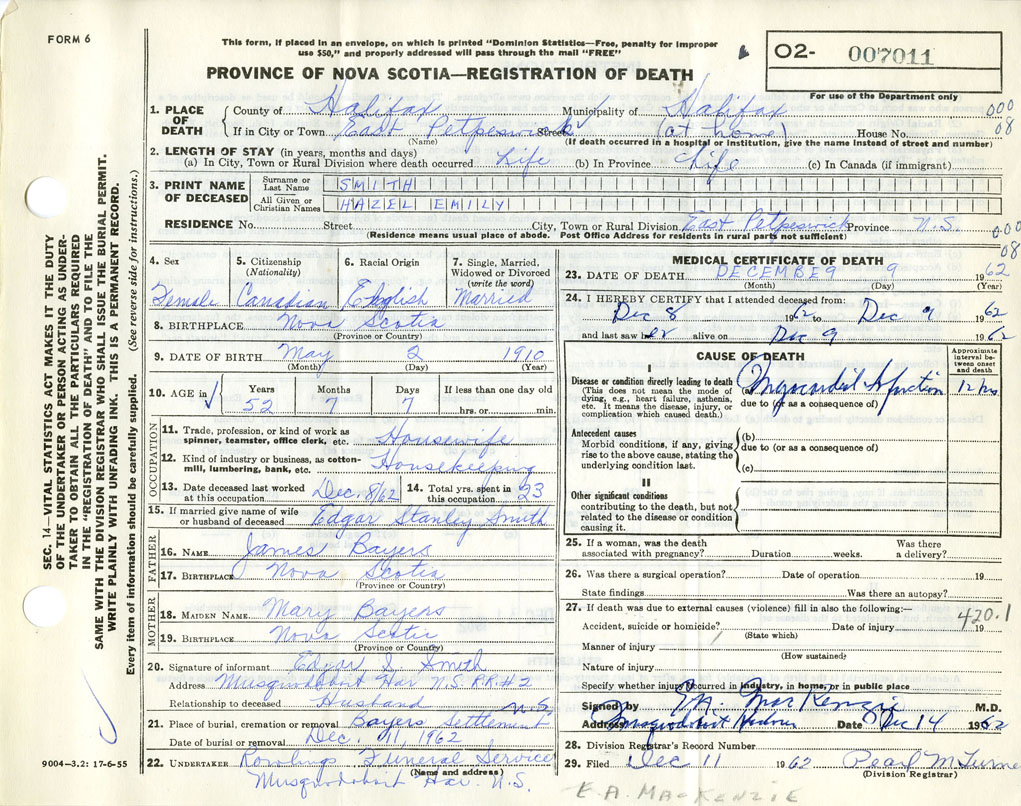 FORM 6
This form, if placed in an envelope, on which is printed "Dominion Statistics—Free, penalty for improper
use $50," and properly addressed will pass through the mail "FREE"
O2- 007011
For use of the Department only
PROVINCE OF NOVA SCOTIA—REGISTRATION OF DEATH
1. PLACE OF DEATH County of Halifax Municipality of Halifax 000
If in City or Town East Petpeswick Street (at home) House No. 08
(Name) (If death occurred in a hospital or institution, give the name instead of street and number)
2. LENGTH OF STAY (in years, months and days)
(a) In City, Town or Rural Division where death occurred Life (b) In Province Life (c) In Canada (if immigrant)
3. PRINT NAME OF DECEASED
Surname or Last Name SMITH
All Given or Christian Names HAZEL EMILY
RESIDENCE No. Street City, Town or Rural Division East Petpeswick Province N.S. 000
(Residence means usual place of abode. Post Office Address for residents in rural parts not sufficient) 08
4. Sex Female
5. Citizenship (Nationality) Canadian
6. Racial Origin English
7. Single, Married, Widowed or Divorced (write the word) Married
8. BIRTHPLACE Nova Scotia
(Province or Country)
9. DATE OF BIRTH May 2 1910
(Month) (Day) (Year)
10. AGE in Years 52 Months 7 Days 7 If less than one day old hrs. or min.
OCCUPATION
11. Trade, profession, or kind of work as spinner, teamster, office clerk, etc. Housewife
12. Kind of industry or business, as cotton-mill, lumbering, bank, etc. Housekeeping
13. Date deceased last worked at this occupation Dec. 8/62
14. Total yrs. spent in this occupation 23
15. If married give name of wife or husband of deceased Edgar Stanley Smith
FATHER
16. NAME James Bayers
17. BIRTHPLACE Nova Scotia
(Province or Country)
MOTHER
18. MAIDEN NAME Mary Bayers
19. BIRTHPLACE Nova Scotia
(Province or Country)
20. Signature of informant Edgar S. Smith
Address Musquodoboit Har N.S. RR#2
Relationship to deceased Husband N.S
21. Place of burial, cremation or removal Bayers Settlement
Date of burial or removal Dec. 11, 1962
22. UNDERTAKER Rowlings Funeral Service
(Name and address)
Musquodoboit Har. N.S.
9004—3.2: 17-6-55
MEDICAL CERTIFICATE OF DEATH
23. DATE OF DEATH DECEMBER 9 1962
(Month) (Day) (Year)
24. I HEREBY CERTIFY that I attended deceased from:
Dec 8 1962 to Dec 9 1962
and last saw her alive on Dec 9 1962
CAUSE OF DEATH
Approximate interval between onset and death
I
Disease or condition directly leading to death
(This does not mean the mode of dying, e.g., heart failure, asthenia, etc. It means the disease, injury, or complication which caused death.)
(a) Myocardial Infarction 12 hrs
due to (or as a consequence of)
Antecedent causes
Morbid conditions, if any, giving rise to the above cause, stating the underlying condition last.
(b)
due to (or as a consequence of)
(c)
II
Other significant conditions
contributing to the death, but not related to the disease or condition causing it.
25. If a woman, was the death associated with pregnancy? Duration weeks. Was there a delivery?
26. Was there a surgical operation? Date of operation 19
State findings Was there an autopsy?
27. If death was due to external causes (violence) fill in also the following:—
420.1
Accident, suicide or homicide? Date of injury 19
(State which)
Manner of injury
(How sustained)
Nature of injury
Specify whether injury occurred in industry, in home, or in public place
Signed by E.A. MacKenzie M.D.
Address Musquodoboit Harbour Date Dec 14 1962
28. Division Registrar's Record Number
29. Filed Dec 11 1962 Pearl M Turner
(Division Registrar)
E.A. MACKENZIE
SEC. 14—VITAL STATISTICS ACT MAKES IT THE DUTY
OF THE UNDERTAKER OR PERSON ACTING AS UNDER-
TAKER TO OBTAIN ALL THE PARTICULARS REQUIRED
IN THE "REGISTRATION OF DEATH" AND TO FILE THE
SAME WITH THE DIVISION REGISTRAR WHO SHALL ISSUE THE BURIAL PERMIT.
WRITE PLAINLY WITH UNFADING INK. THIS IS A PERMANENT RECORD.
Every item of information should be carefully supplied. (See reverse side for instructions.)